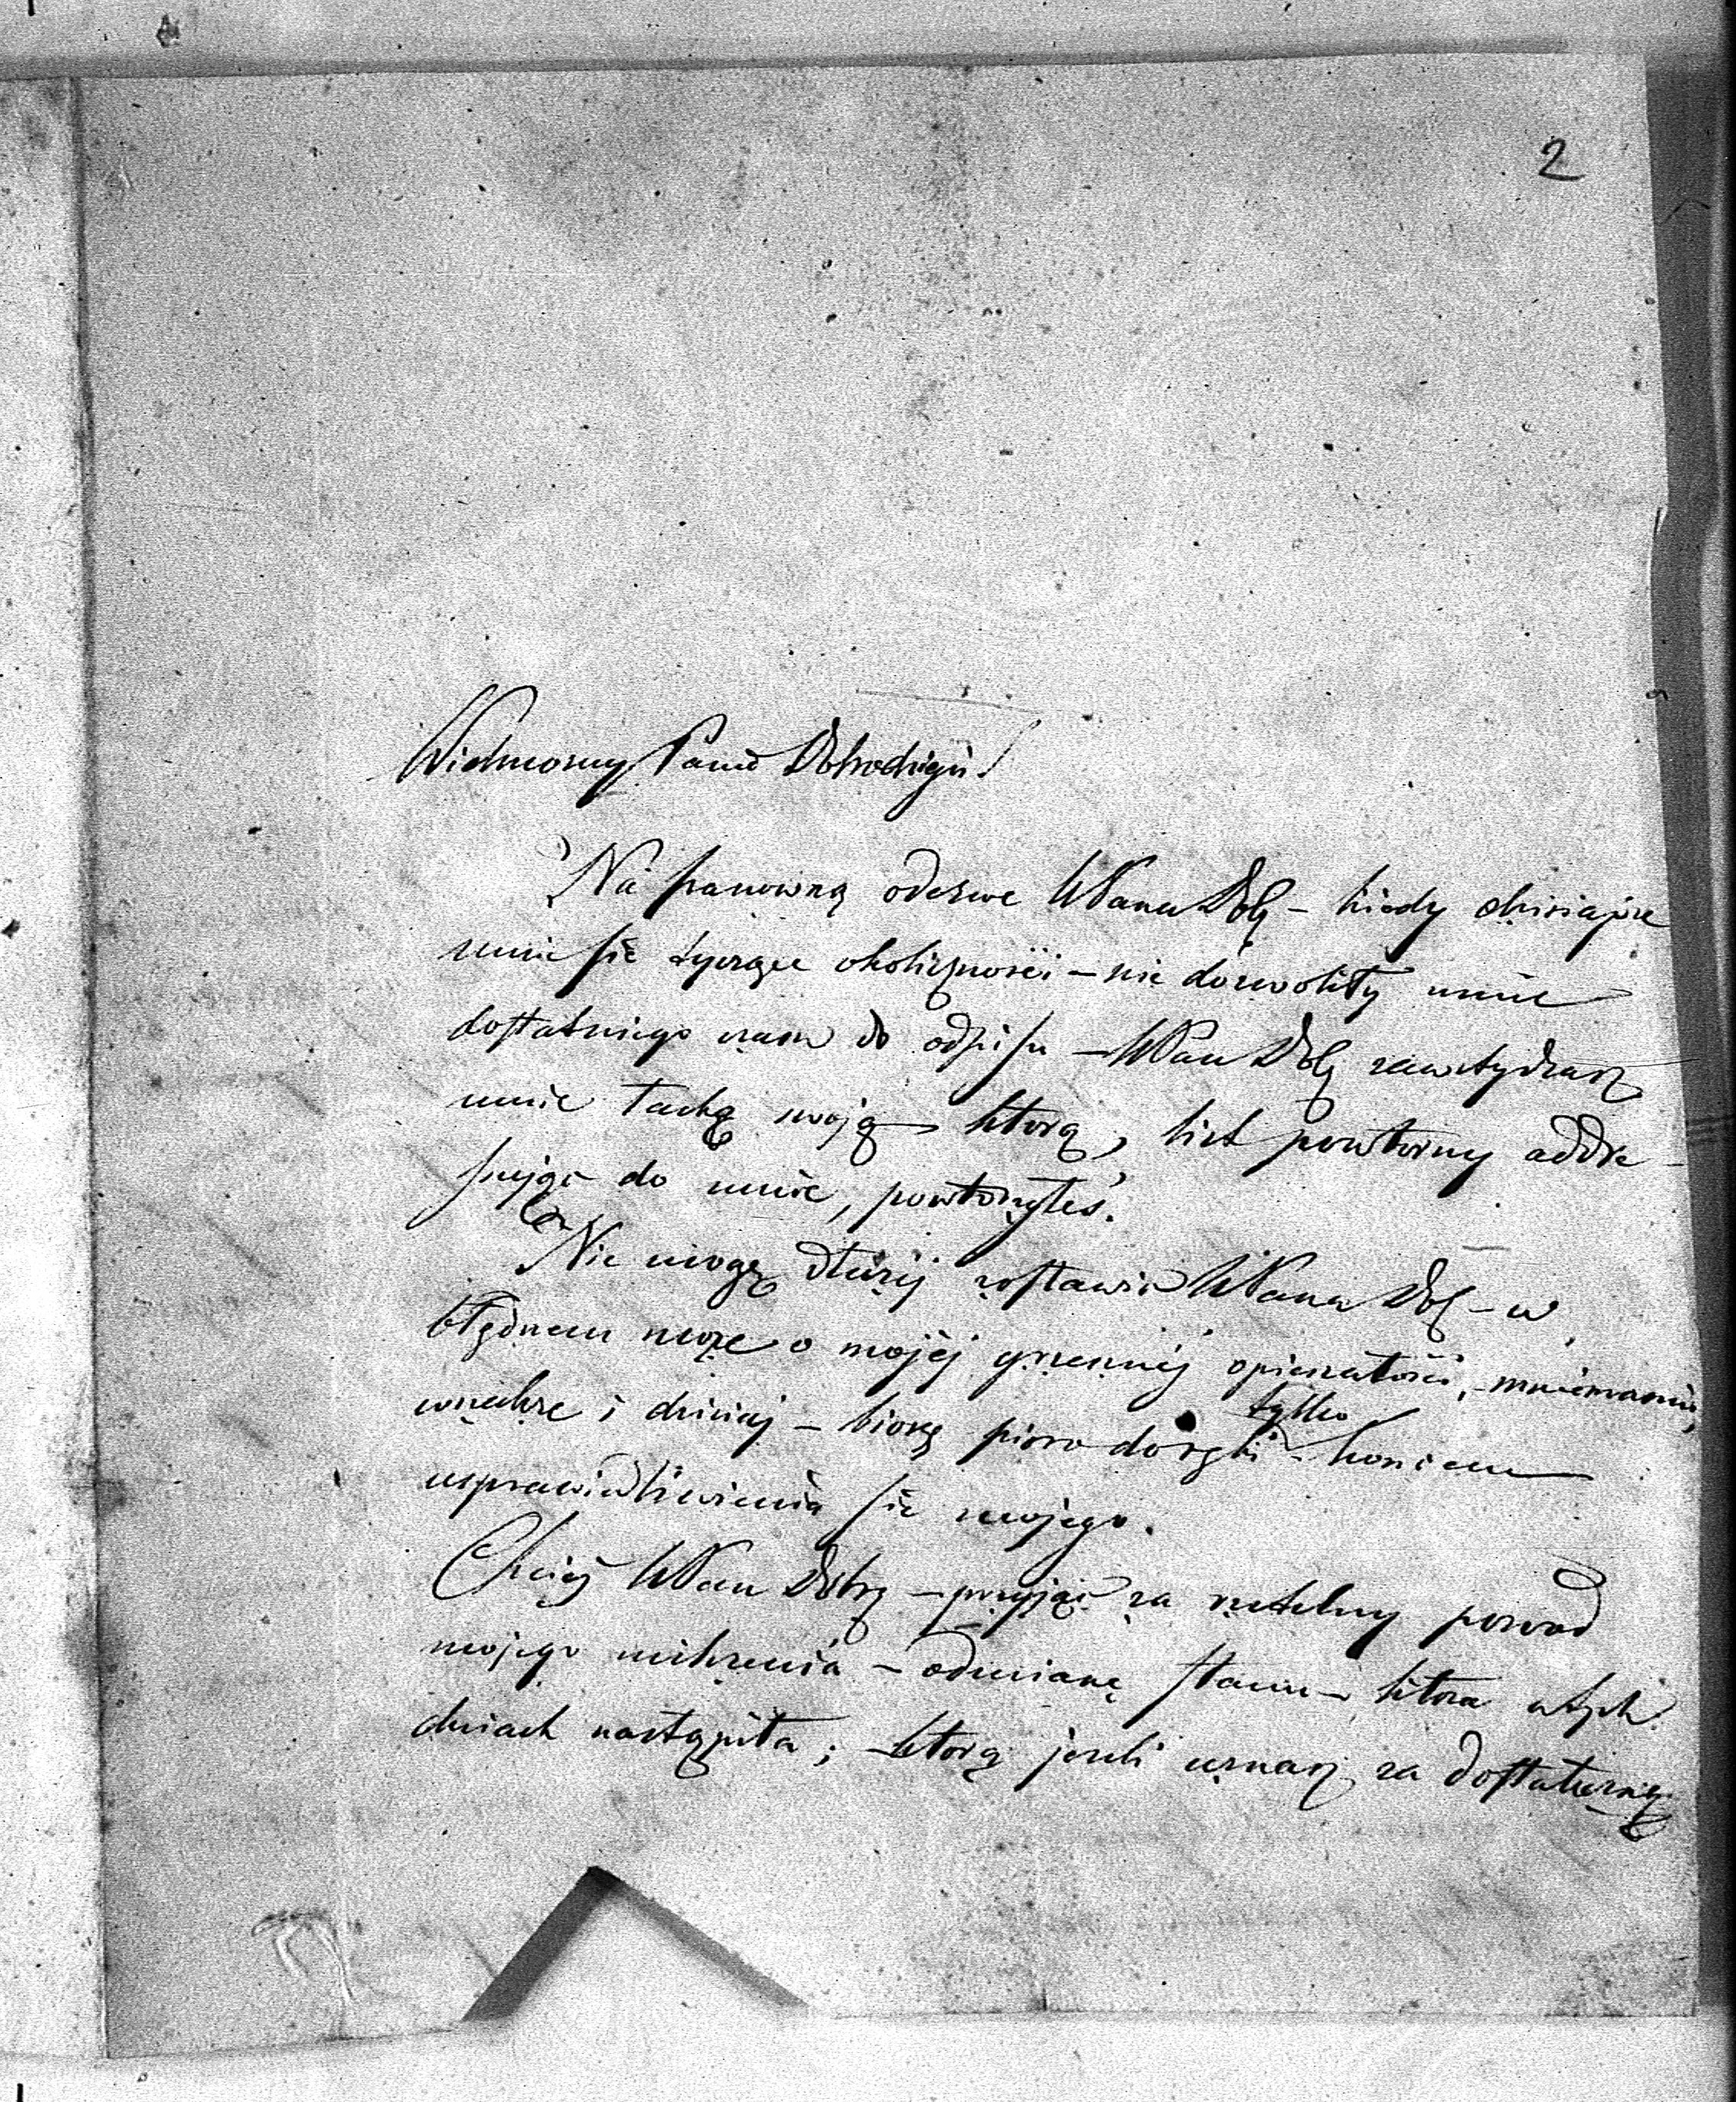 2
Wielmożny Panie Dobrodzieju!
Na szanowną odezwe WPana Dob – kiedy dzisiajsze
mnie się tyczące okoliczności – nie dozwoliły mnie
dostatniego czasu do odpisu – WPan Dob zawstydzasz
mnie łaską swoją którą, list powtorny addre-
sując do mnie, powtorzyłeś.
Nie mogę dłużej zostawić WPana Dob – w
błędnem może o mojéj grzecznéj opieszałości, – mniemaniu,
wszakże i dzisiaj – biorę pioro do ręki tylko – koniem
usprawiedliwienia się mojego.
Chciéj WPan Dobrz – przyjąć za rzetelny powod
mojego milczenia – odmianę stanu – ktora w tych
dniach nastąpiła; – ktorą jeżeli uznasz za dostateczną